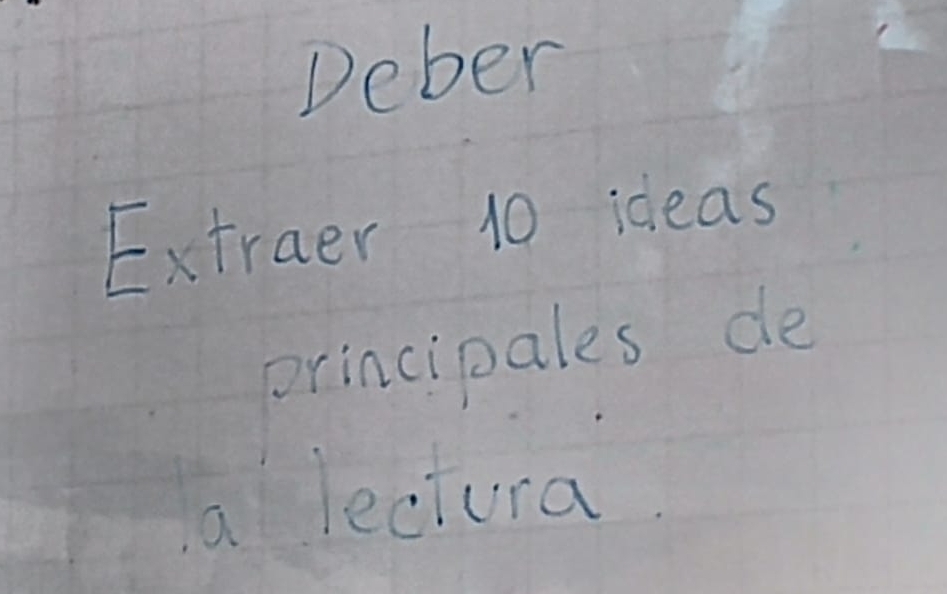 Deber
Extraer 10 ideas
principales de
la lectura.